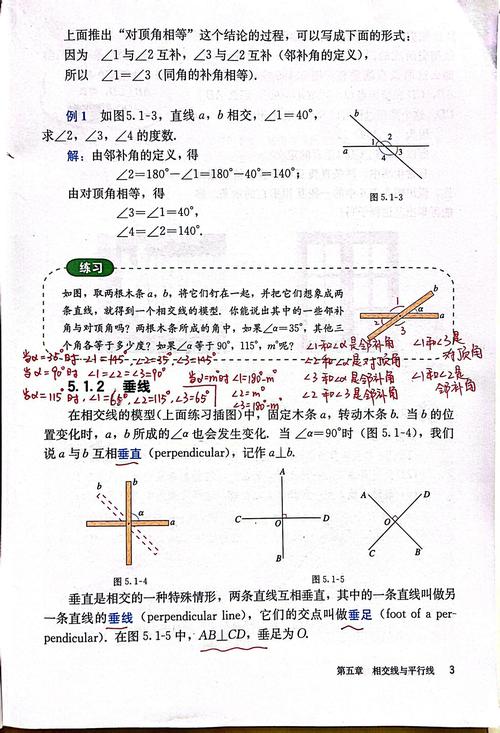 上面推出“对顶角相等”这个结论的过程，可以写成下面的形式：
因为 ∠1与∠2互补，∠3与∠2互补（邻补角的定义），
所以 ∠1=∠3（同角的补角相等）.
例1 如图5.1-3，直线a，b相交，∠1=40°，
求∠2，∠3，∠4的度数.
解：由邻补角的定义，得
∠2=180°－∠1=180°－40°=140°；
由对顶角相等，得
∠3=∠1=40°，
∠4=∠2=140°.
b
a
1
2
3
4
图5.1-3
练习
如图，取两根木条a，b，将它们钉在一起，并把它们想象成两
条直线，就得到一个相交线的模型. 你能说出其中的一些邻补
角与对顶角吗？两根木条所成的角中，如果∠α=35°，其他三
个角各等于多少度？如果∠α等于90°，115°，m°呢？
b
a
1
2
3
α
∠1和∠α是邻补角
∠2和∠α是对顶角
∠3和∠α是邻补角
∠2和∠3是邻补角
∠1和∠3是
对顶角
∠1和∠2是
邻补角
当α=35°时 ∠1=145°，∠2=35°，∠3=145°
当α=90°时 ∠1=∠2=∠3=90°
当α=115°时，∠1=65°，∠2=115°，∠3=65°
当α=m°时 ∠1=180-m°
∠2=m°
∠3=180-m°
5.1.2 垂线
在相交线的模型（上面练习插图）中，固定木条a，转动木条b. 当b的位
置变化时，a，b所成的∠α也会发生变化. 当∠α=90°时（图5.1-4），我们
说a与b互相垂直（perpendicular），记作a⊥b.
b
b
α
a
图5.1-4
A
C
O
D
B
A
D
O
C
B
图5.1-5
垂直是相交的一种特殊情形，两条直线互相垂直，其中的一条直线叫做另
一条直线的垂线（perpendicular line），它们的交点叫做垂足（foot of a per-
pendicular）. 在图5.1-5中，AB⊥CD，垂足为O.
第五章 相交线与平行线 3